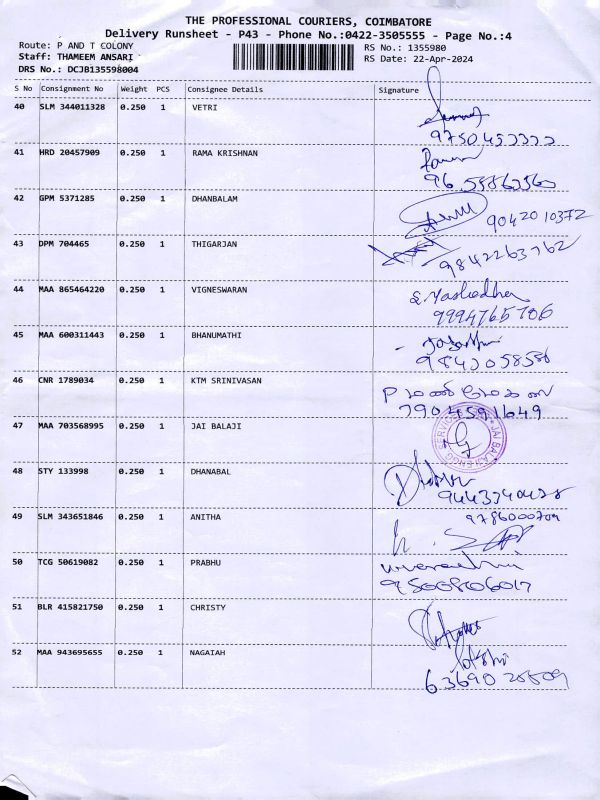 THE PROFESSIONAL COURIERS, COIMBATORE
Delivery Runsheet - P43 - Phone No.:0422-3505555 - Page No.:4
Route: P AND T COLONY RS No.: 1355980
Staff: THAMEEM ANSARI RS Date: 22-Apr-2024
DRS No.: DCJB135598004
S No Consignment No Weight PCS Consignee Details Signature
40 SLM 344011328 0.250 1 VETRI
41 HRD 20457909 0.250 1 RAMA KRISHNAN
42 GPM 5371285 0.250 1 DHANBALAM
9042010372
43 DPM 704465 0.250 1 THIGARJAN
9842263762
44 MAA 865464220 0.250 1 VIGNESWARAN
9994765706
45 MAA 600311443 0.250 1 BHANUMATHI
46 CNR 1789034 0.250 1 KTM SRINIVASAN
7904591649
47 MAA 703568995 0.250 1 JAI BALAJI
JAI BALAJI ENGG SERVICE
48 STY 133998 0.250 1 DHANABAL
49 SLM 343651846 0.250 1 ANITHA
9786000709
50 TCG 50619082 0.250 1 PRABHU
9500806017
51 BLR 415821750 0.250 1 CHRISTY
52 MAA 943695655 0.250 1 NAGAIAH